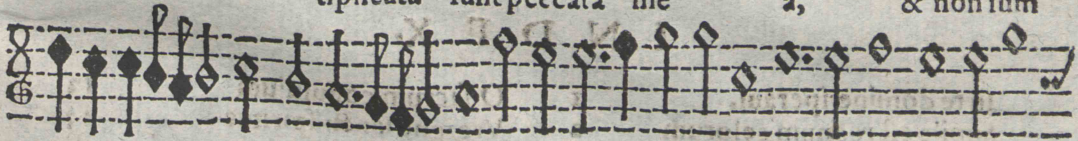 tiplicata sunt peccata me a, & non sum